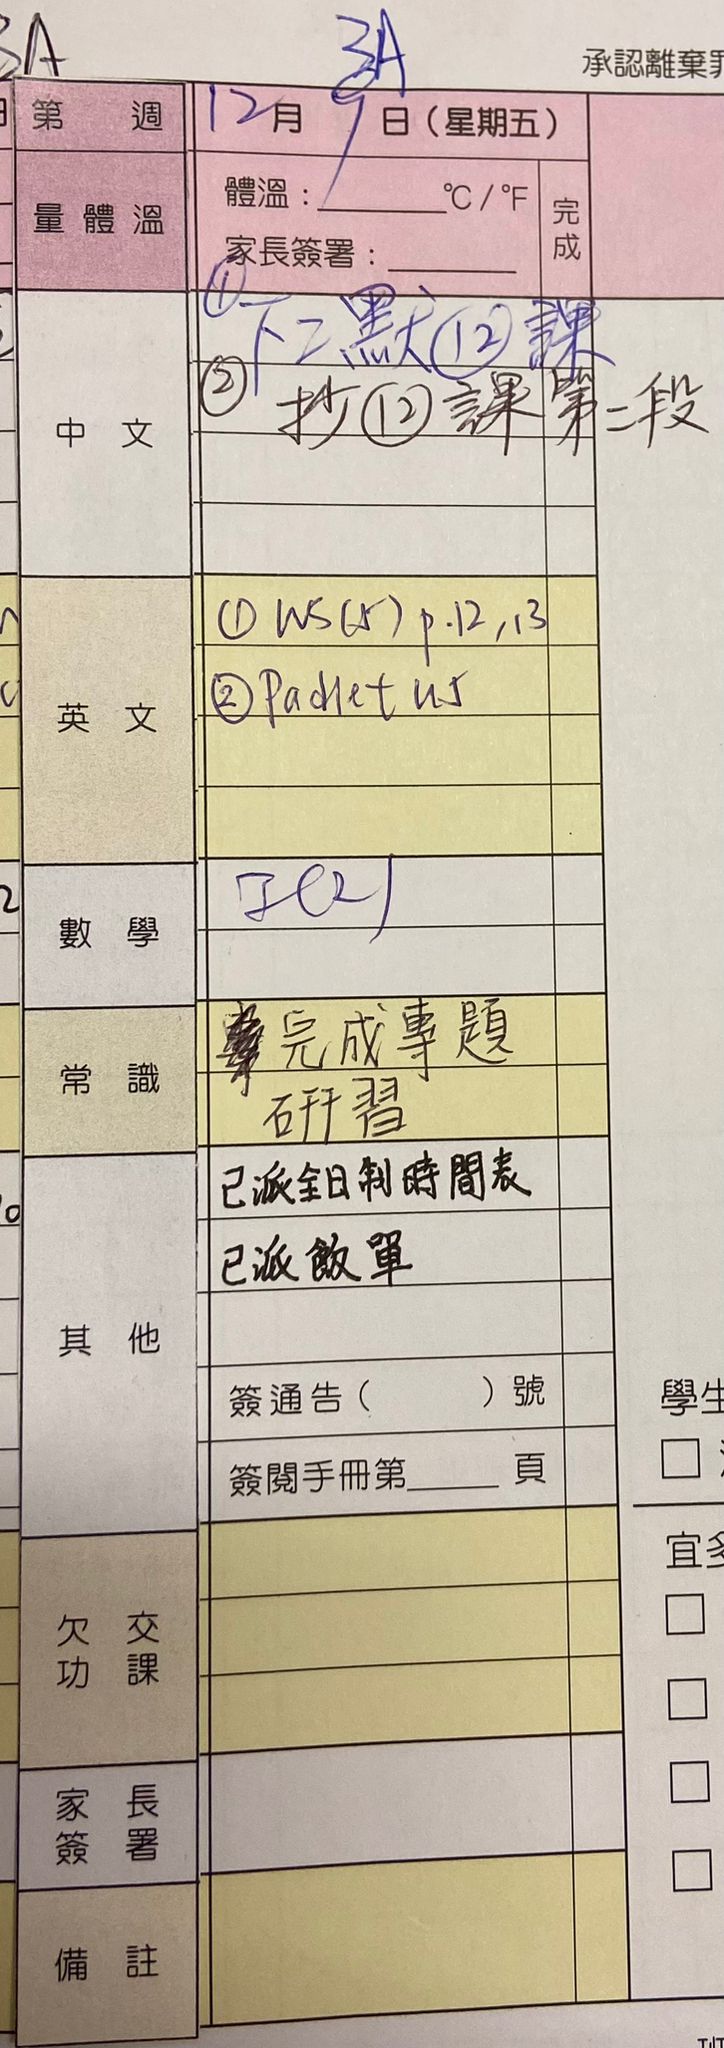 3A
3A
承認離棄罪
第 週
12月9日（星期五）
量體溫
體溫：______℃/℉
家長簽署：______
完成
中文
① 下二默⑫課
② 抄⑫課第二段
英文
① WS(5) p.12,13
② Packet U5
數學
常識
完成專題
研習
其他
已派全日制時間表
已派飯單
簽通告（ ）號
簽閱手冊第_____頁
學生
欠交
功課
宜多
家長
簽署
備註